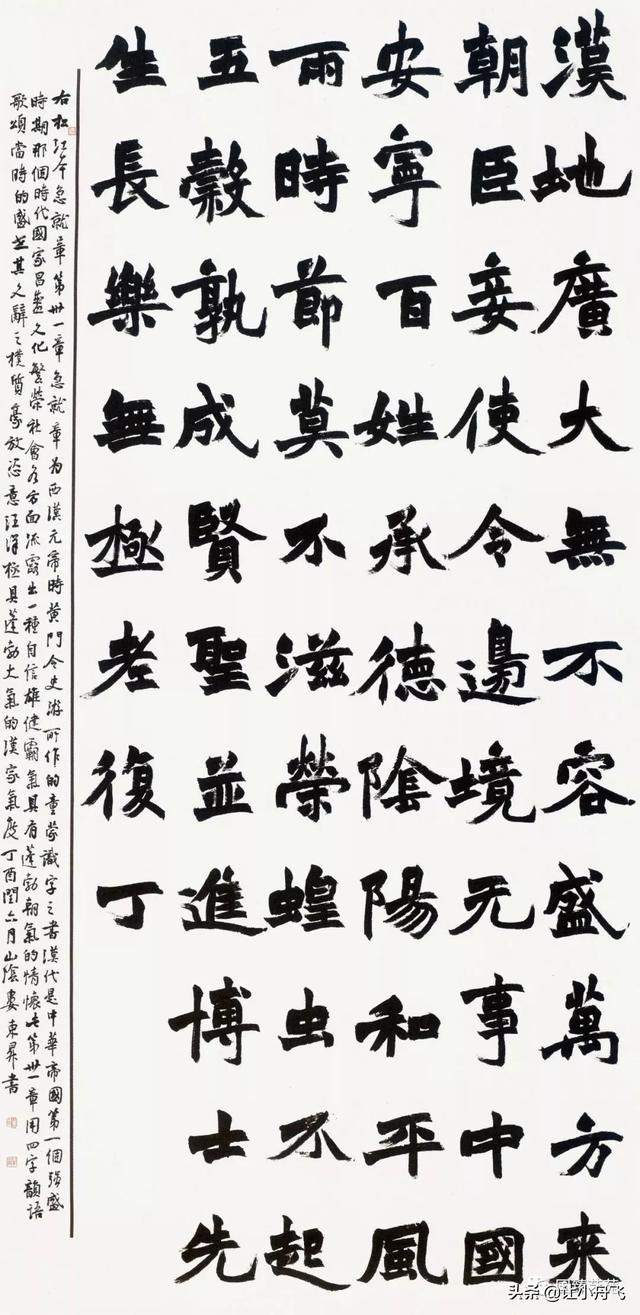 漢地廣大無不容盛萬方来
朝臣妾使令邊境无事中國
安寧百姓承德陰陽和平風
雨時節莫不滋榮蝗虫不起
五穀孰成賢聖並進博士先
生長樂無極老復丁
右松江本急就章第卅一章急就章为西漢元帝時黄門令史游所作的童蒙識字之書漢代是中華帝國第一個强盛
時期那個時代國家昌盛文化繁榮社會各方面流露出一種自信雄健霸氣具有蓬勃朝氣的情懷此第卅一章用四字韻語
歌頌當時的盛世其文辭之樸質豪放恣意汪洋極具蓬勃大氣的漢家氣度丁酉閏六月山陰婁東昇書
头条@让小丹飞